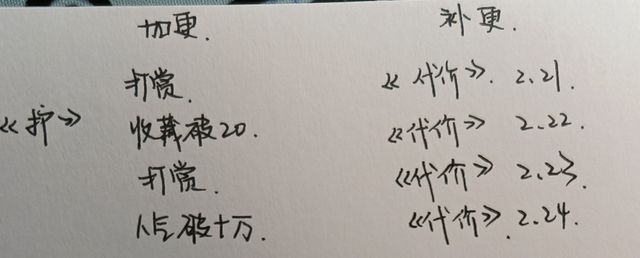 加更. 补更.
打赏. 《代价》. 2.21.
《护》 收藏破20. 《代价》 2.22.
打赏. 《代价》 2.23.
人气破十万. 《代价》. 2.24.